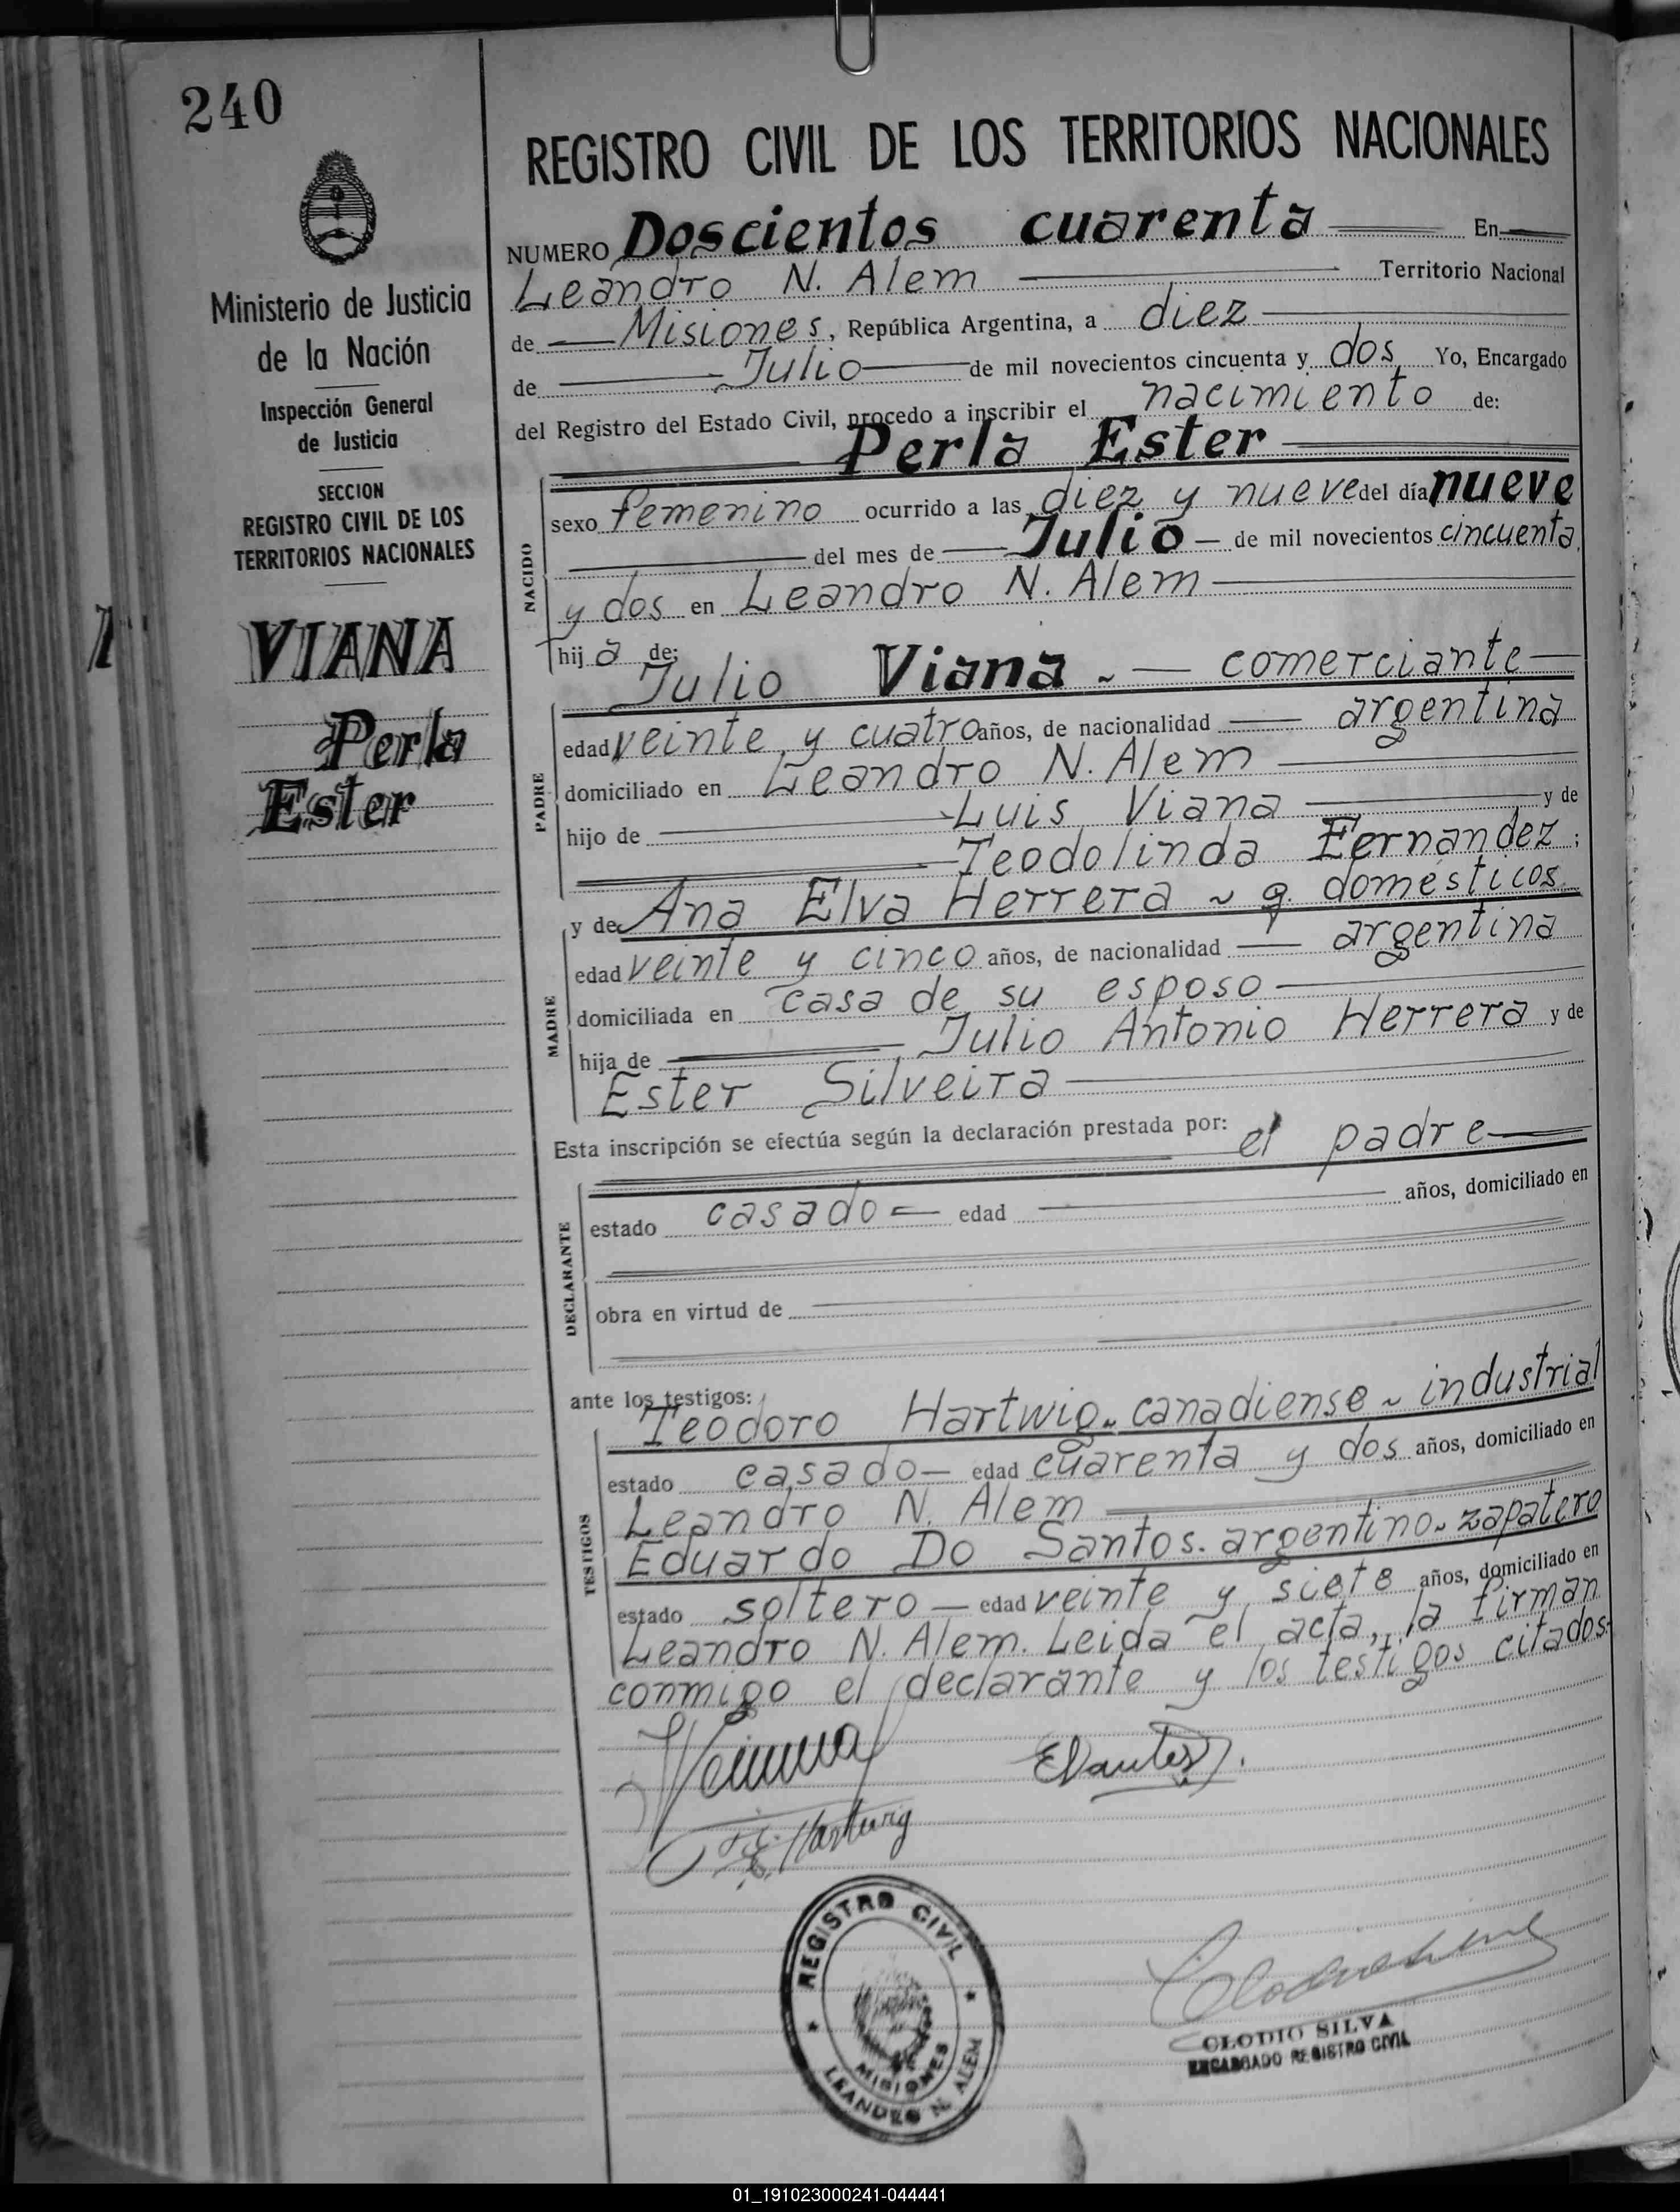 240
Ministerio de Justicia
de la Nación
Inspección General
de Justicia
SECCION
REGISTRO CIVIL DE LOS
TERRITORIOS NACIONALES
VIANA
Perla
Ester
REGISTRO CIVIL DE LOS TERRITORIOS NACIONALES
NUMERO Doscientos cuarenta En
Leandro N. Alem Territorio Nacional
de Misiones, República Argentina, a diez
de Julio de mil novecientos cincuenta y dos Yo, Encargado
del Registro del Estado Civil, procedo a inscribir el nacimiento de:
Perla Ester
NACIDO
sexo femenino ocurrido a las diez y nueve del día nueve
del mes de Julio de mil novecientos cincuenta
y dos en Leandro N. Alem
hija de:
Julio Viana. - comerciante
PADRE
edad veinte y cuatro años, de nacionalidad argentina
domiciliado en Leandro N. Alem
hijo de Luis Viana y de
Teodolinda Fernandez;
y de Ana Elva Herrera ~ q. domésticos
MADRE
edad veinte y cinco años, de nacionalidad argentina
domiciliada en casa de su esposo
hija de Julio Antonio Herrera y de
Ester Silveira
Esta inscripción se efectúa según la declaración prestada por: el padre
DECLARANTE
estado casado edad años, domiciliado en
obra en virtud de
ante los testigos:
Teodoro Hartwig. canadiense ~ industrial
TESTIGOS
estado casado edad cuarenta y dos años, domiciliado en
Leandro N. Alem
Eduardo Do Santos. argentino. zapatero
estado soltero edad veinte y siete años, domiciliado en
Leandro N. Alem. Leida el acta, la firman
conmigo el declarante y los testigos citados.
Hartwig
REGISTRO CIVIL
MISIONES
LEANDRO N. ALEM
CLODIO SILVA
ENCARGADO REGISTRO CIVIL
01_191023000241-044441